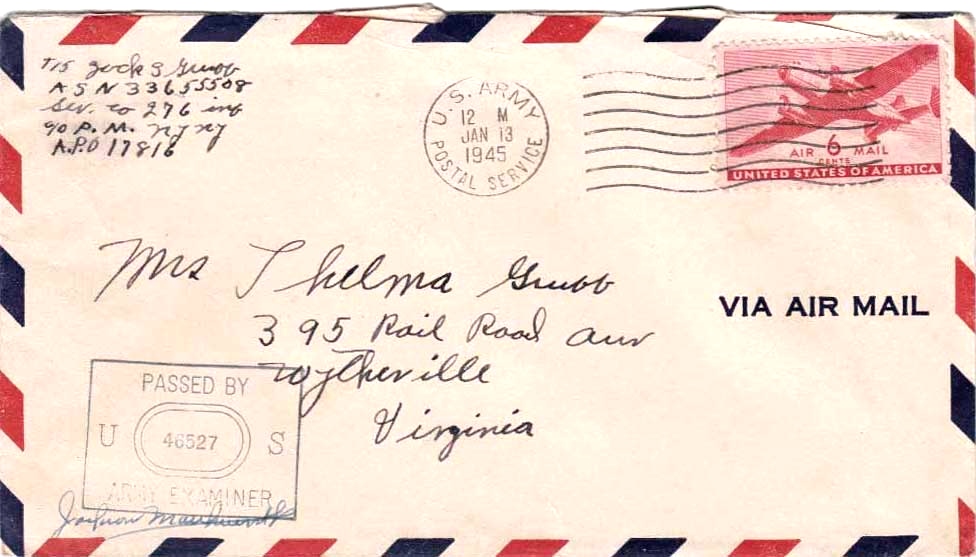 T/5 Jack G Grubb
ASN 33655508
Ser. Co 276 inf
% P.M. NY NY
A.P.O 17816
U.S. ARMY
12 M
JAN 13
1945
POSTAL SERVICE
AIR 6 MAIL
CENTS
UNITED STATES OF AMERICA
Mrs Thelma Grubb
395 Rail Road Ave
Wytheville
Virginia
VIA AIR MAIL
PASSED BY
U 46527 S
ARMY EXAMINER